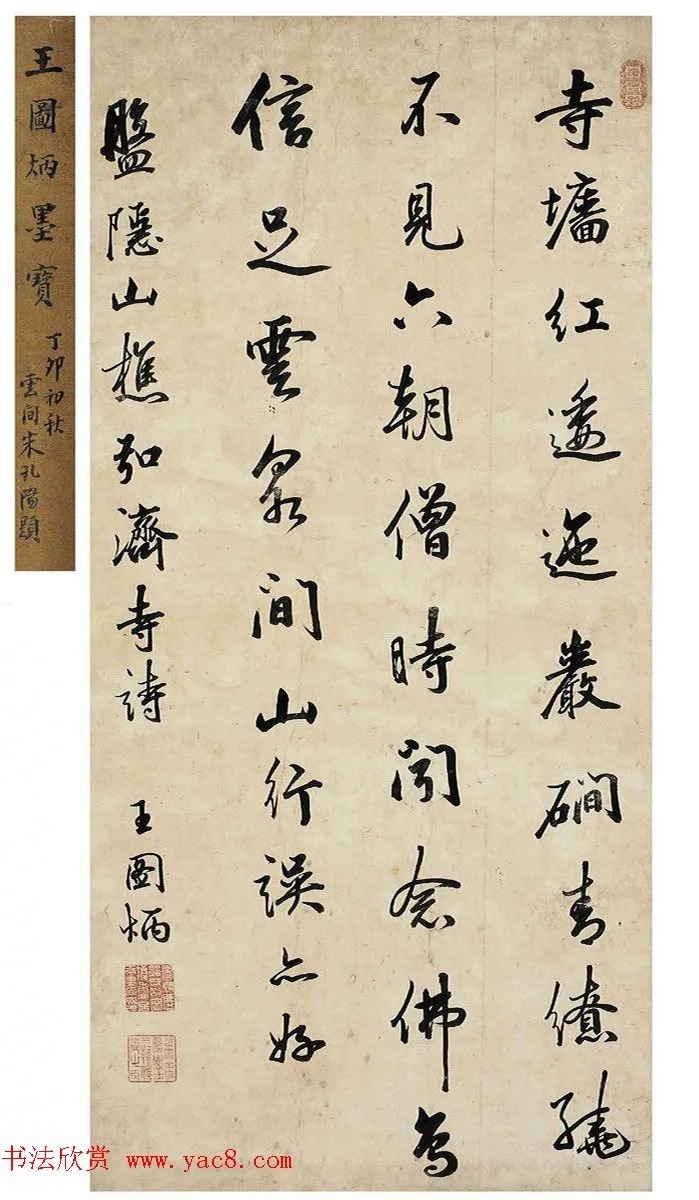 寺墻紅逶迤巖磵青繚繞
不見六朝僧時聞念佛鳥
信足雲泉間山行誤亦好
盤隱山樵弘濟寺詩
王圖炳
王圖炳墨寶
丁卯初秋
雲間朱孔陽題
书法欣赏 www.yac8.com